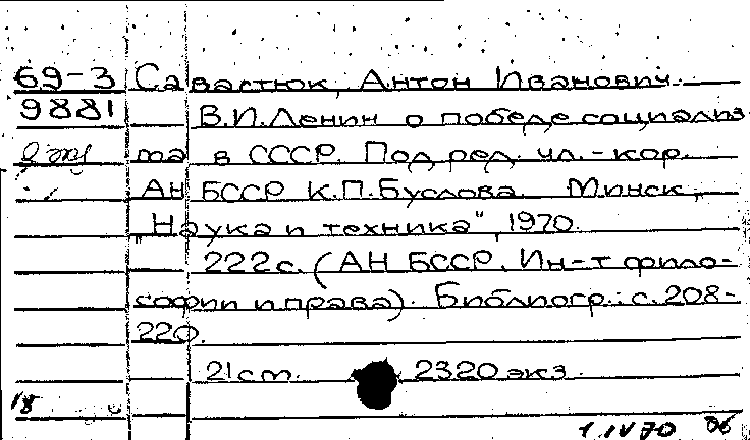 69-3 Савастюк, Антон Иванович.
9881 В.И.Ленин о победе социализ
ма в СССР. Под ред. чл.-кор.
АН БССР К.П.Буслова. Минск,
"Наука и техника", 1970.
222с. (АН БССР. Ин-т фило-
софии и права). Библиогр.: с. 208-
220.
21 cm. 2320 экз.
18
1.IV 70